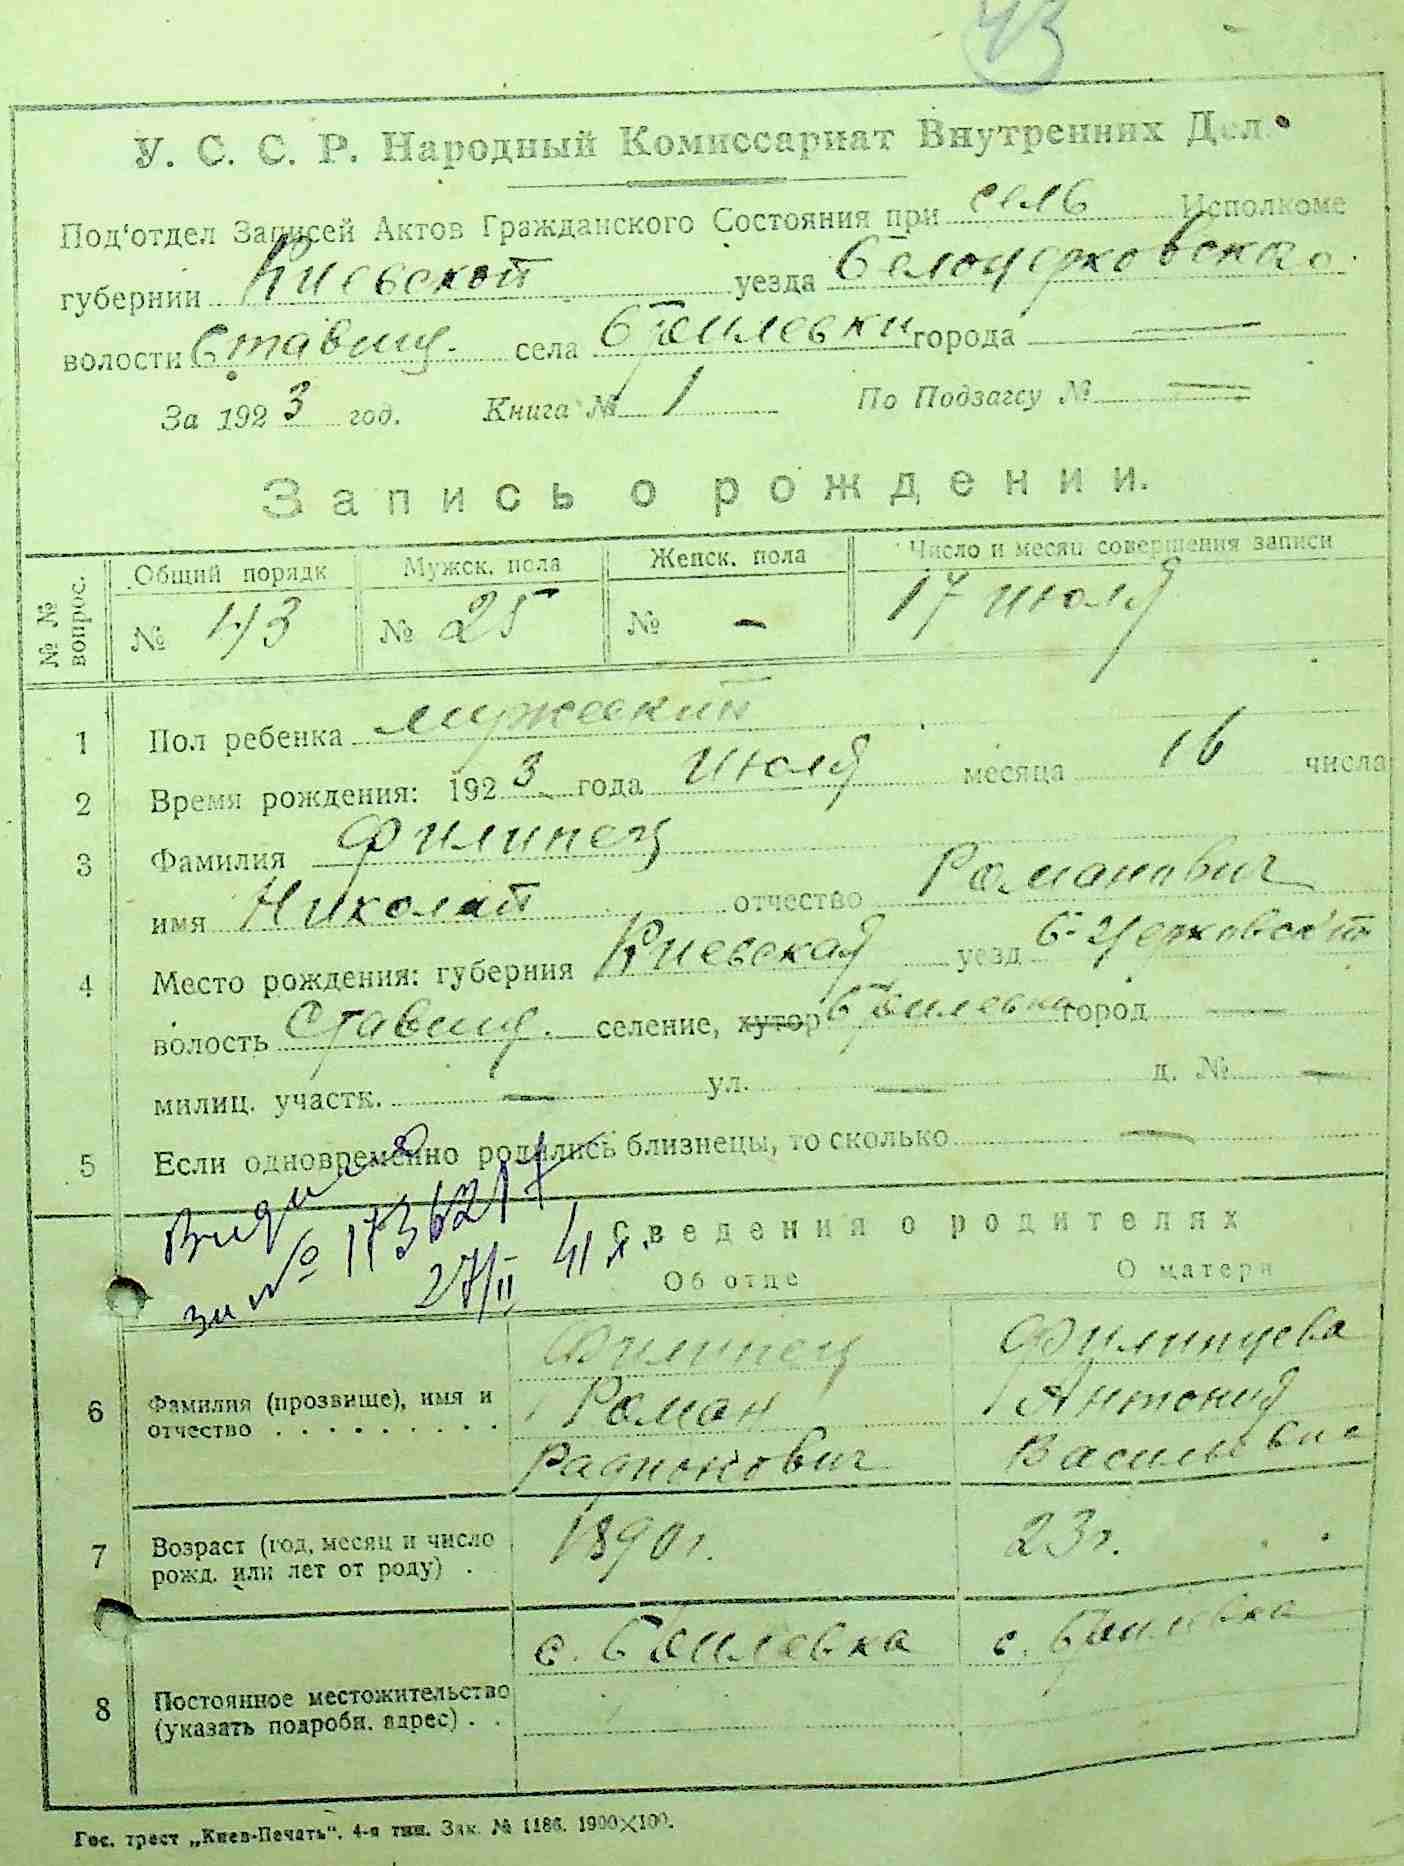 43
У. С. С. Р. Народный Комиссариат Внутренних Дел.
Под'отдел Записей Актов Гражданского Состояния при сель Исполкоме
губернии Киевской уезда Белоцерковского
волости Ставищ. села города —
За 1923 год. Книга № 1 По Подзагсу № —
Запись о рождении.
№ № вопрос. Общий порядк Мужск. пола Женск. пола Число и месяц совершения записи
№ 43 № 25 № - 17 июля
1 Пол ребенка мужеский
2 Время рождения: 1923 года июля месяца 16 числа
3 Фамилия Филипец
имя Николай отчество Романович
4 Место рождения: губерния Киевская уезд Б-Церковский
волость Ставищ. селение, хутор город —
милиц. участк. — ул. — д. № —
5 Если одновременно родились близнецы, то сколько —
за № 1736217
27/II 41 г.
Сведения о родителях
Об отце О матери
6 Фамилия (прозвище), имя и отчество . . . . . . . . .
Филипец Филипцева
Роман Антония
Радионович
7 Возраст (год, месяц и число рожд. или лет от роду) .
1890 г. 23 г.
8 Постоянное местожительство (указать подробн. адрес) . .
с. с.
Гос. трест „Киев-Печать“. 4-я тип. Зак. № 1186. 1900×100.